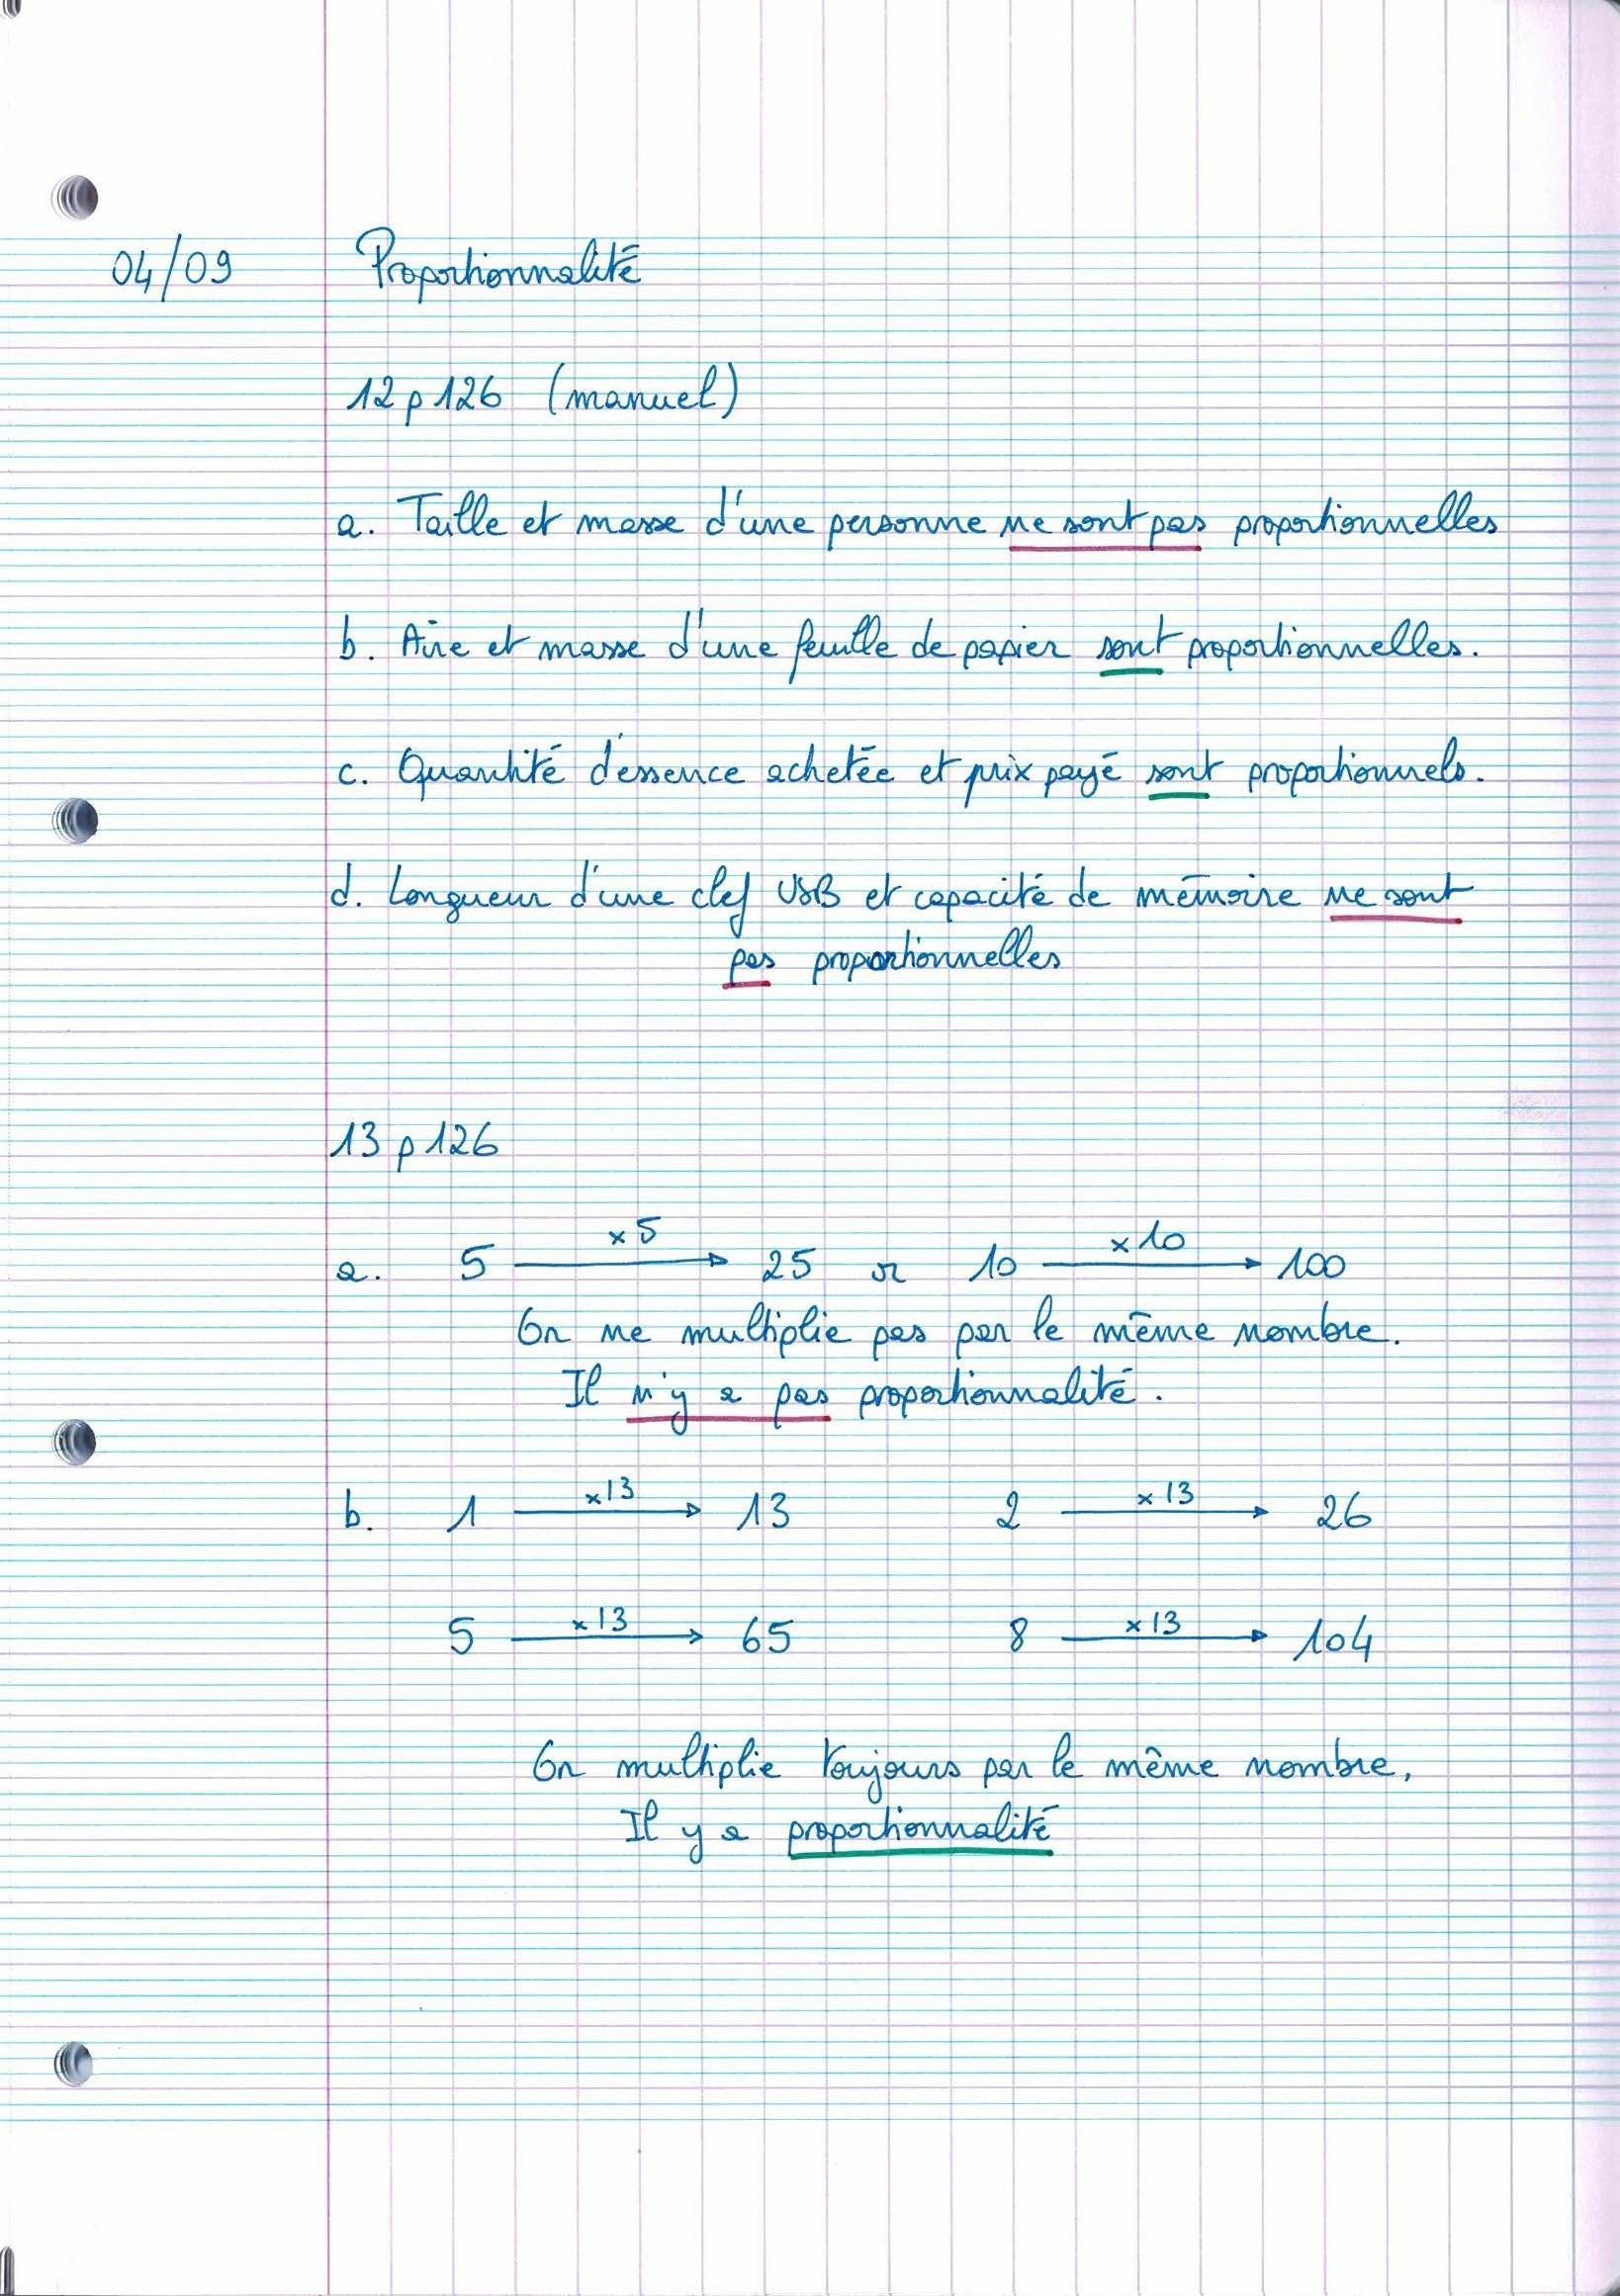 04/09 Proportionnalité
12 p 126 (manuel)
a. Taille et masse d'une personne ne sont pas proportionnelles
b. Aire et masse d'une feuille de papier sont proportionnelles.
c. Quantité d'essence achetée et prix payé sont proportionnels.
d. Longueur d'une clef USB et capacité de mémoire ne sont
pas proportionnelles
13 p 126
a. 5 ×5 → 25 or 10 ×10 → 100
On ne multiplie pas par le même nombre.
Il n'y a pas proportionnalité.
b. 1 ×13 → 13 2 ×13 → 26
5 ×13 → 65 8 ×13 → 104
On multiplie toujours par le même nombre,
Il y a proportionnalité